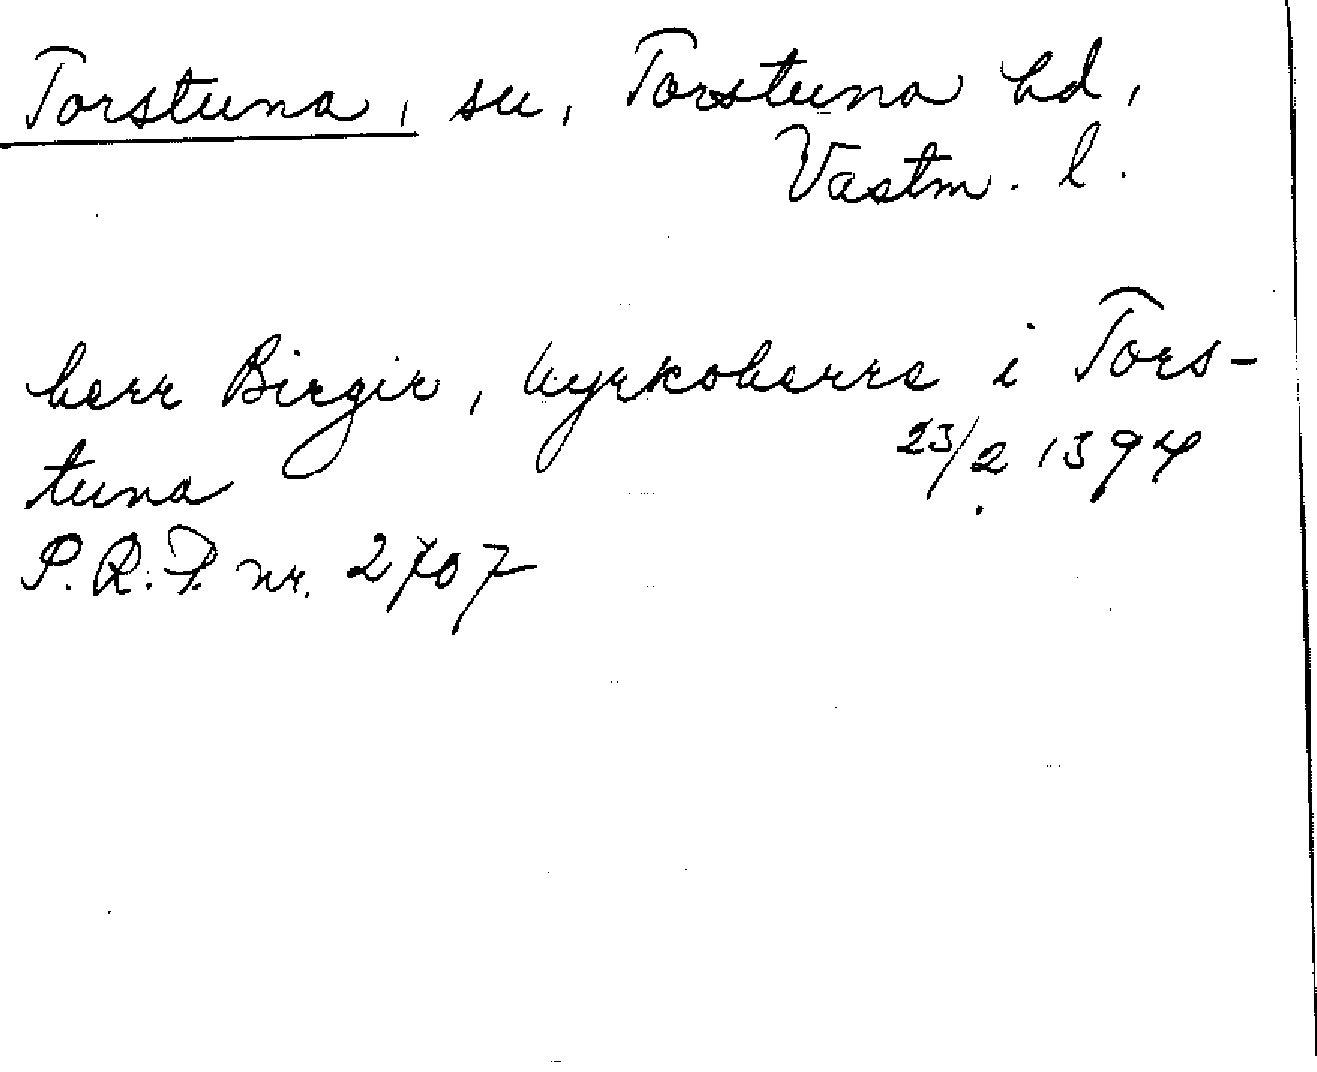 Torstuna, sn, Torstuna hd,
Västm. l.
herr Birgir, kyrkoherre i Tors-
tuna 23/2 1394
P.R.P. nr. 2707